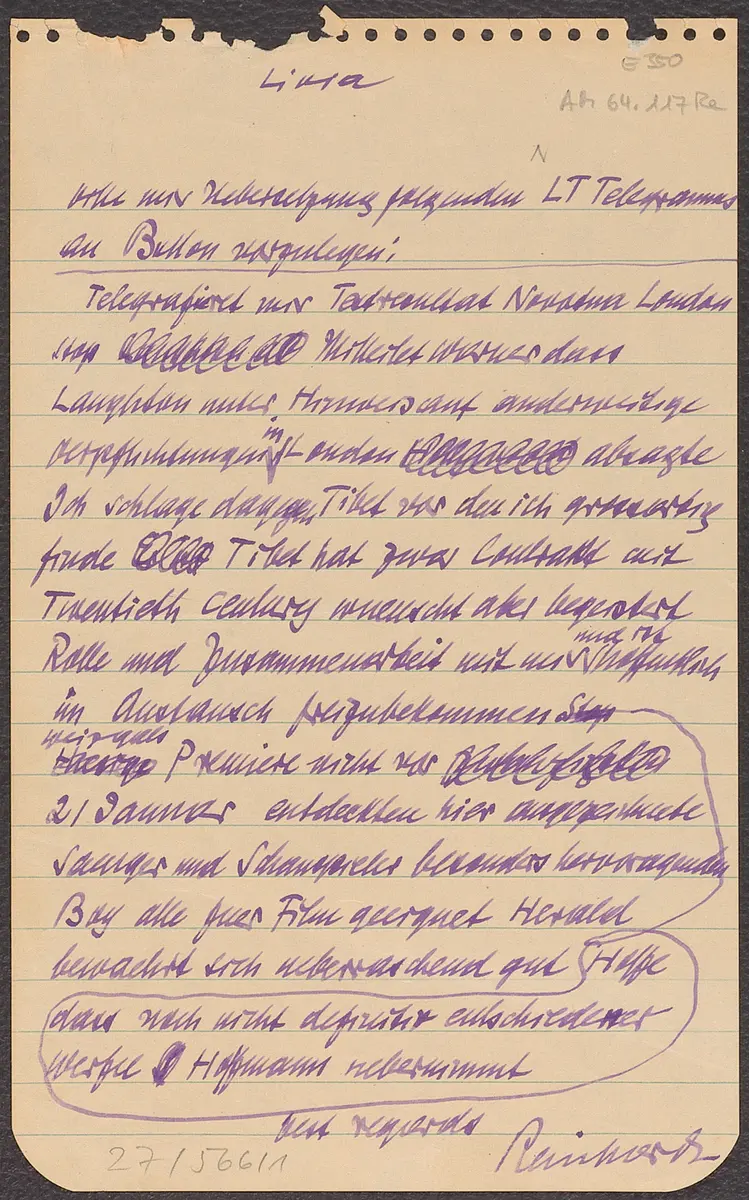 Livia
E 350
AM 64.117 Re
N
bitte mir Uebersetzung folgenden LT Telegramms
an Button vorzulegen:
Telegrafieret mir Testresultat Novotna London
stop Mitteilet Werner dass
Laughton unter Hinweis auf anderweitige
Verpflichtungen in London absagte
Ich schlage dagegen Tibet vor den ich grossartig
finde Tibet hat zwar Contrakt mit
Twentieth Century wuenscht aber begeistert
Rolle und Zusammenarbeit mit mir und ist hoffentlich
im Austausch freizubekommen
Premiere nicht vor
21 Januar entdeckten hier ausgezeichnete
Saenger und Schauspieler besonders hervorragenden
Boy alle fuer Film geeignet Herald
bewaehrt sich ueberraschend gut Hoffe
dass noch nicht definitiv entschiedener
Werfel Hoffmann uebernimmt
best regards
Reinhardt
27/566/1